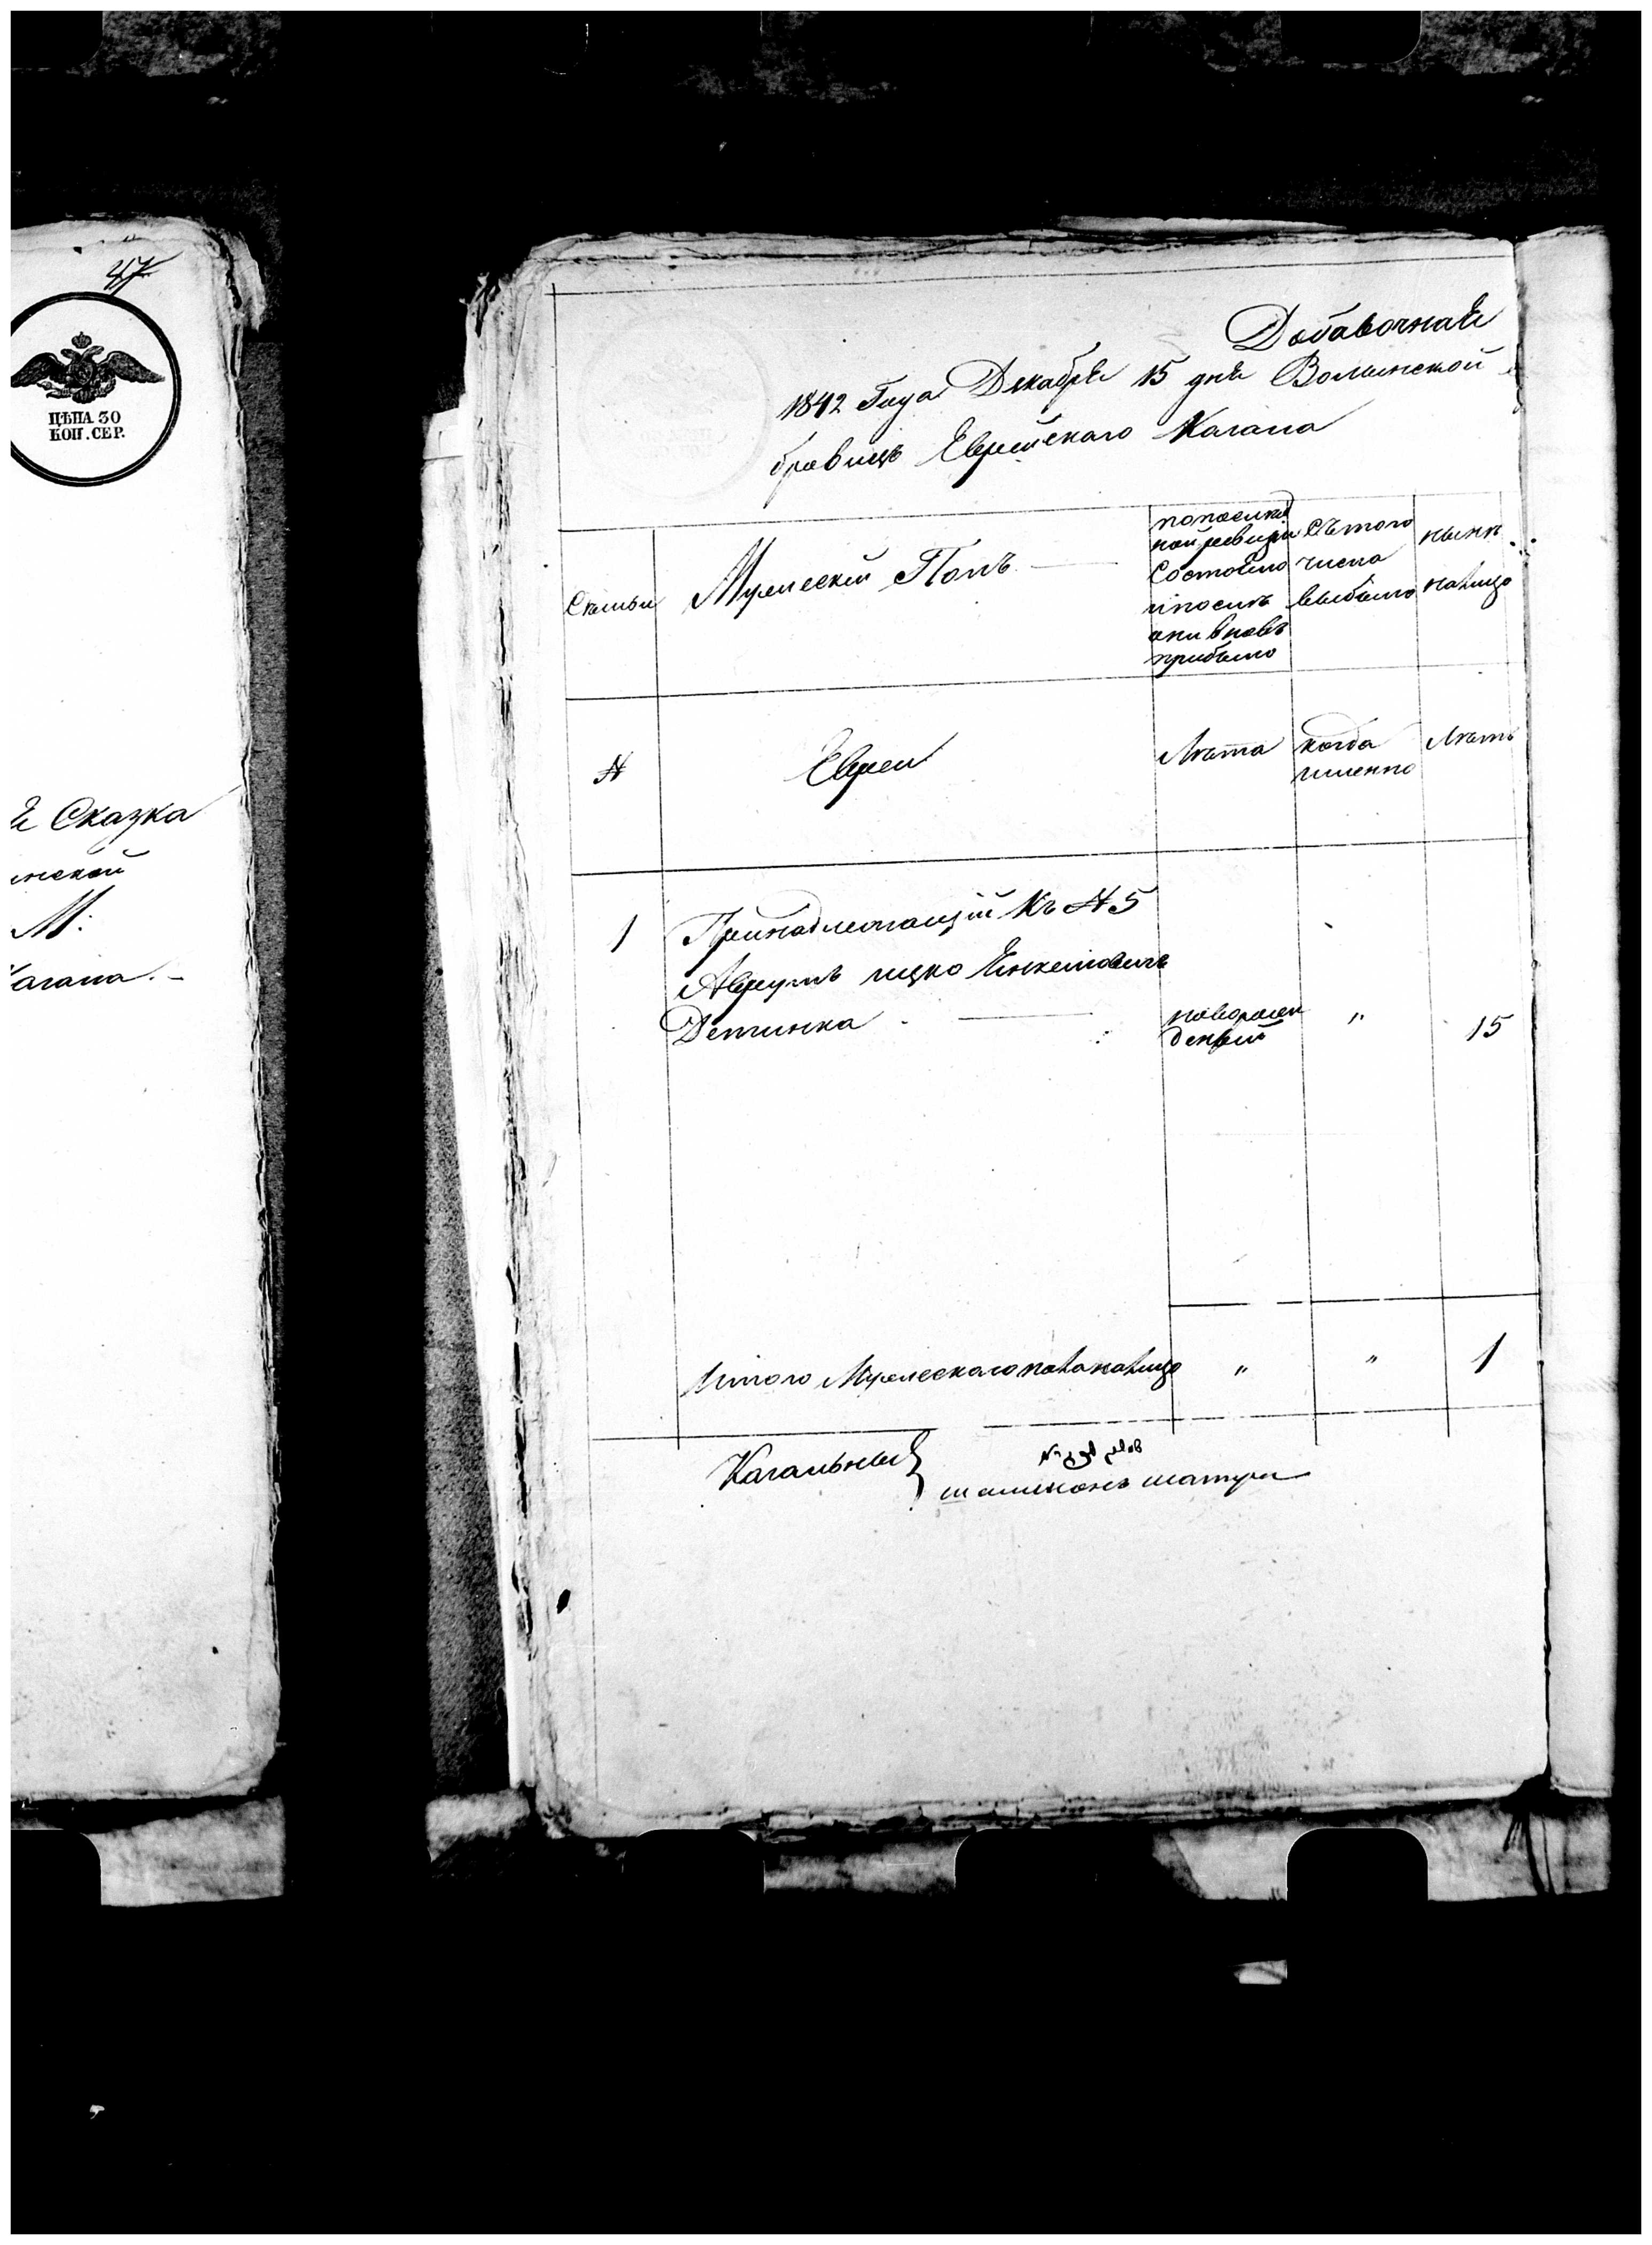 47
ЦѢНА 30
КОП. СЕР.
я Сказка
нской
М:
Кагала. –
Добавочная
1842 Года Декабря 15 дня Волынской
бровицъ Еврейскаго Кагала
Семьи
Мужескій Полъ
по послѣд
ней ревизіи
Состояло
и послѣ
они вновь
прибыло
Съ того
числа
выбыло
нынѣ
налицо
№
Евреи
Лѣта
когда
именно
Лѣта
1
Принадлежащій Къ № 5
Аврумъ ицко Янкелювичъ
Детинка
новорож
денный
"
15
Итого Мужескаго пола налицо
"
"
1
Кагальный